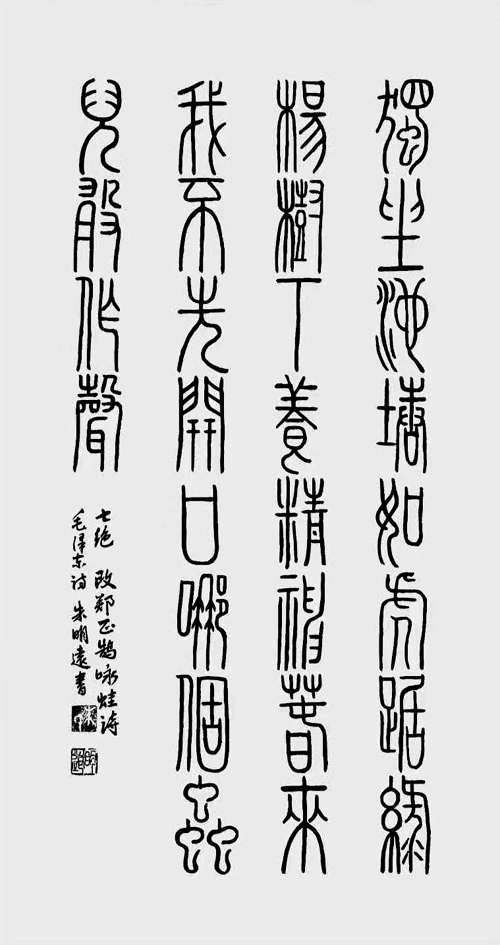 獨坐池塘如虎踞綠
楊樹下養精神春來
我不先開口哪個蟲
兒敢作聲
七绝 改郑正鹄咏蛙诗
毛泽东诗 朱明遠書